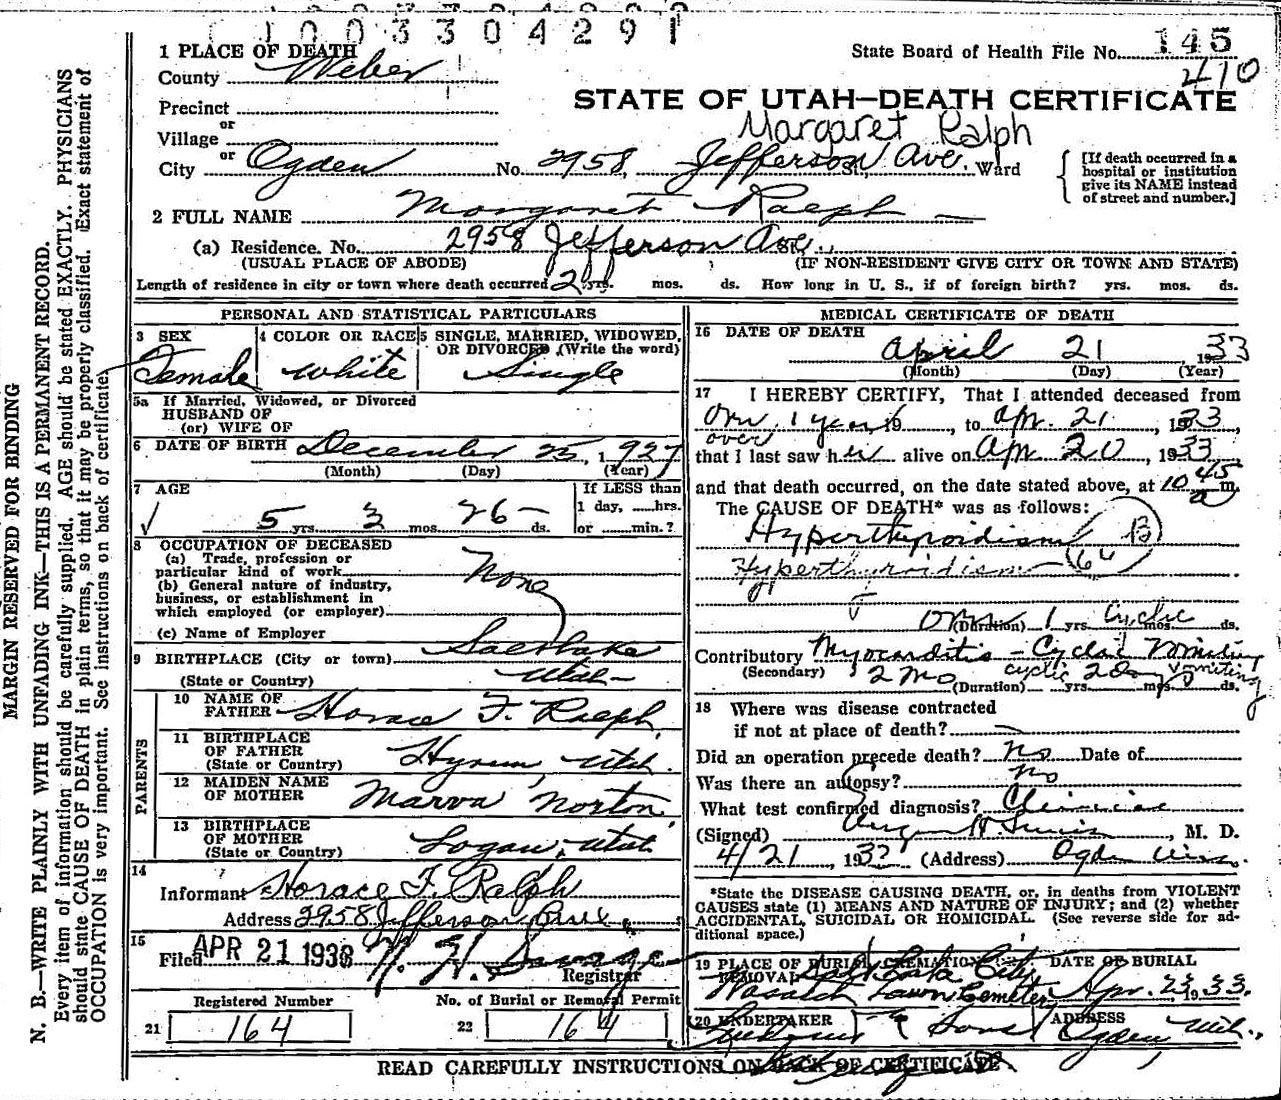 1003304291
1 PLACE OF DEATH
State Board of Health File No. 145
410
County Weber
STATE OF UTAH—DEATH CERTIFICATE
Precinct
or
Village
Margaret Ralph
or
City Ogden No. 2958, Jefferson Ave. St., Ward
[If death occurred in a
hospital or institution
give its NAME instead
of street and number.]
2 FULL NAME Margaret Ralph
(a) Residence. No. 2958 Jefferson Ave. St.,
(USUAL PLACE OF ABODE) (IF NON-RESIDENT GIVE CITY OR TOWN AND STATE)
Length of residence in city or town where death occurred 2 yrs. mos. ds. How long in U. S., if of foreign birth? yrs. mos. ds.
PERSONAL AND STATISTICAL PARTICULARS
3 SEX
Female
4 COLOR OR RACE
White
5 SINGLE, MARRIED, WIDOWED,
OR DIVORCED (Write the word)
Single
5a If Married, Widowed, or Divorced
HUSBAND OF
(or) WIFE OF
6 DATE OF BIRTH December 25, 1927
(Month) (Day) (Year)
7 AGE
5 yrs. 3 mos. 26 ds.
If LESS than
1 day, ....hrs.
or ....min.?
8 OCCUPATION OF DECEASED
(a) Trade, profession or
particular kind of work
(b) General nature of industry,
business, or establishment in
which employed (or employer)
None
(c) Name of Employer
9 BIRTHPLACE (City or town) Salt Lake
(State or Country) Utah
PARENTS
10 NAME OF
FATHER Horace F. Ralph
11 BIRTHPLACE
OF FATHER
(State or Country) Hyrum, Utah.
12 MAIDEN NAME
OF MOTHER Marva Norton
13 BIRTHPLACE
OF MOTHER
(State or Country) Logan, Utah.
14
Informant Horace F. Ralph
Address 2958 Jefferson Ave.
15
Filed APR 21 1933
Registrar
Registered Number
21 164
No. of Burial or Removal Permit
22 164
MEDICAL CERTIFICATE OF DEATH
16 DATE OF DEATH
April 21, 1933
(Month) (Day) (Year)
17 I HEREBY CERTIFY, That I attended deceased from
Over 1 year 19 , to Apr. 21, 1933,
over
that I last saw her alive on Apr 20, 1933
and that death occurred, on the date stated above, at 10 45 a m.
The CAUSE OF DEATH* was as follows:
Hyperthyroidism
Hyperthyroidism
(Duration) 1 yrs. mos. ds.
Cyclic
Contributory Myocarditis - Cyclic Vomiting
(Secondary) 2 mo cyclic 2 day vomiting
(Duration) yrs. mos. ds.
18 Where was disease contracted
if not at place of death?
Did an operation precede death? no Date of
Was there an autopsy? no
What test confirmed diagnosis? Clinical
(Signed) , M. D.
4/21, 1933 (Address) Ogden Utah.
*State the DISEASE CAUSING DEATH, or, in deaths from VIOLENT
CAUSES state (1) MEANS AND NATURE OF INJURY; and (2) whether
ACCIDENTAL, SUICIDAL OR HOMICIDAL. (See reverse side for ad-
ditional space.)
19 PLACE OF BURIAL, CREMATION OR REMOVAL
Salt Lake City
Wasatch Lawn Cemetery
DATE OF BURIAL
Apr. 23, 1933.
20 UNDERTAKER
& Sons
ADDRESS
Ogden, Utah.
READ CAREFULLY INSTRUCTIONS ON BACK OF CERTIFICATE
MARGIN RESERVED FOR BINDING
N. B.—WRITE PLAINLY WITH UNFADING INK—THIS IS A PERMANENT RECORD.
Every item of information should be carefully supplied. AGE should be stated EXACTLY. PHYSICIANS
should state CAUSE OF DEATH in plain terms, so that it may be properly classified. Exact statement of
OCCUPATION is very important. See instructions on back of certificate.